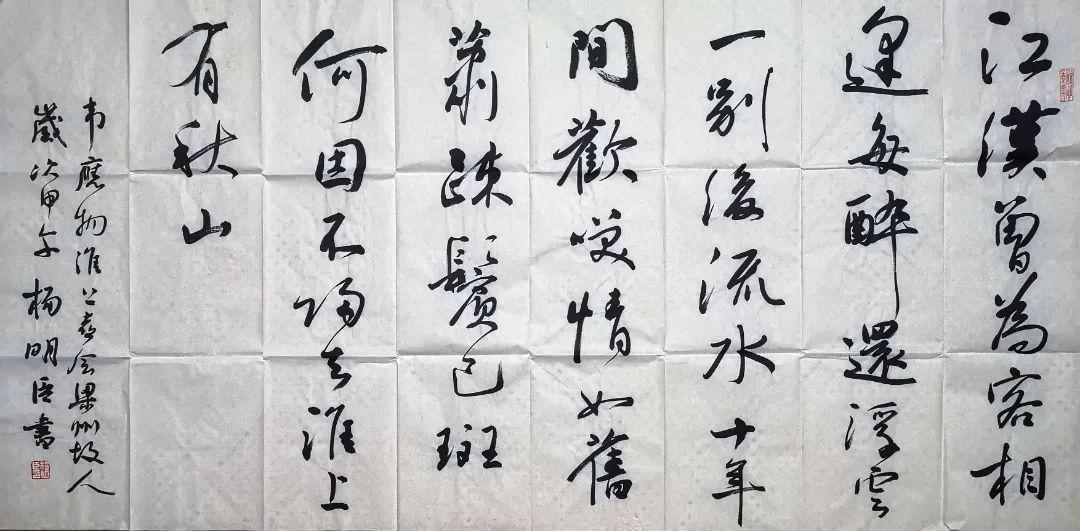 江漢曾為客相
逢每醉還浮雲
一别後流水十年
間歡咲情如舊
蕭疎鬢已斑
何因不歸去淮上
有秋山
韦應物淮上喜会梁州故人
歲次甲午杨明臣書